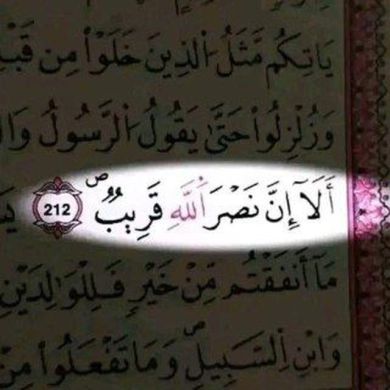 يَاتِكُم مَّثَلُ الَّذِينَ خَلَوْا مِن قَبْلِ
وَزُلْزِلُوا حَتَّىٰ يَقُولُ الرَّسُولُ وَالَّ
أَلَآ إِنَّ نَصْرَ اللَّهِ قَرِيبٌ ۖ 212
مَآ أَنفَقْتُم مِّنْ خَيْرٍ فَلِلْوَٰلِدَيْنِ
وَابْنِ السَّبِيلِ ۖ وَمَا تَفْعَلُوا مِنْ